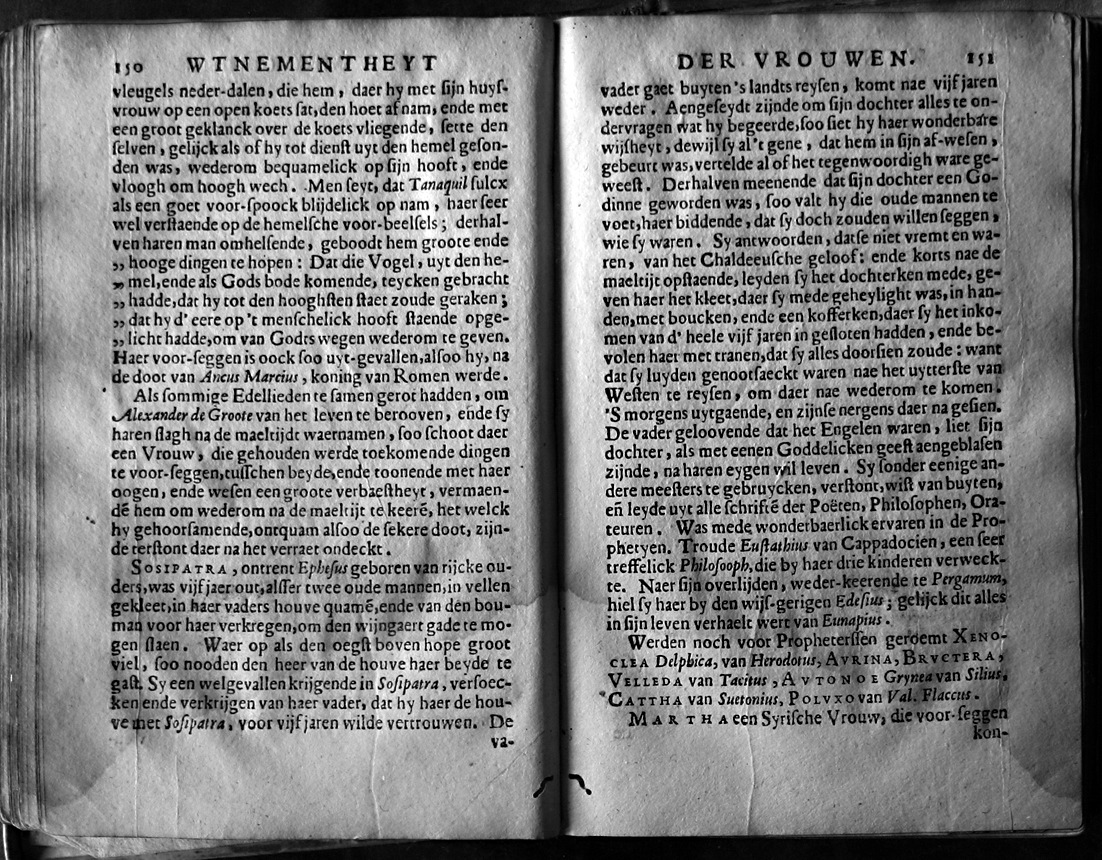 150 WTNEMENTHEYT
vleugels neder-dalen, die hem, daer hy met ſijn huyſ-
vrouw op een open koets ſat, den hoet af nam, ende met
een groot geklanck over de koets vliegende, ſette den
ſelven, gelijck als of hy tot dienſt uyt den hemel geſon-
den was, wederom bequamelick op ſijn hooft, ende
vloogh om hoogh wech. Men ſeyt, dat Tanaquil ſulcx
als een goet voor-ſpoock blijdelick op nam, haer ſeer
wel verſtaende op de hemelſche voor-beelſels; derhal-
ven haren man omhelſende, geboodt hem groote ende
„ hooge dingen te hopen: Dat die Vogel, uyt den he-
„ mel, ende als Gods bode komende, teycken gebracht
„ hadde, dat hy tot den hooghſten ſtaet zoude geraken;
„ dat hy d' eere op 't menſchelick hooft ſtaende opge-
„ licht hadde, om van Godts wegen wederom te geven.
Haer voor-ſeggen is oock ſoo uyt-gevallen, alſoo hy, na
de doot van Ancus Marcius, koning van Romen werde.
Als ſommige Edellieden te ſamen gerot hadden, om
Alexander de Groote van het leven te berooven, ende ſy
haren ſlagh na de maeltijdt waernamen, ſoo ſchoot daer
een Vrouw, die gehouden werde toekomende dingen
te voor-ſeggen, tuſſchen beyde, ende toonende met haer
oogen, ende weſen een groote verbaeſtheyt, vermaen-
dē hem om wederom na de maeltijt te keerē, het welck
hy gehoorſamende, ontquam alſoo de ſekere doot, zijn-
de terſtont daer na het verraet ondeckt.
SOSIPATRA, ontrent Epheſus geboren van rijcke ou-
ders, was vijf jaer out, alſſer twee oude mannen, in vellen
gekleet, in haer vaders houve quamē, ende van den bou-
man voor haer verkregen, om den wijngaert gade te mo-
gen ſlaen. Waer op als den oegſt boven hope groot
viel, ſoo nooden den heer van de houve haer beyde te
gaſt. Sy een welgevallen krijgende in Soſipatra, verſoec-
ken ende verkrijgen van haer vader, dat hy haer de hou-
ve met Soſipatra, voor vijf jaren wilde vertrouwen. De
va-
DER VROUWEN. 151
vader gaet buyten 's landts reyſen, komt nae vijf jaren
weder. Aengeſeydt zijnde om ſijn dochter alles te on-
dervragen wat hy begeerde, ſoo ſiet hy haer wonderbare
wijſheyt, dewijl ſy al 't gene, dat hem in ſijn af-weſen,
gebeurt was, vertelde al of het tegenwoordigh ware ge-
weeſt. Derhalven meenende dat ſijn dochter een Go-
dinne geworden was, ſoo valt hy die oude mannen te
voet, haer biddende, dat ſy doch zouden willen ſeggen,
wie ſy waren. Sy antwoorden, datſe niet vremt en wa-
ren, van het Chaldeeuſche geloof: ende korts nae de
maeltijt opſtaende, leyden ſy het dochterken mede, ge-
ven haer het kleet, daer ſy mede geheylight was, in han-
den, met boucken, ende een kofferken, daer ſy het inko-
men van d' heele vijf jaren in geſloten hadden, ende be-
volen haer met tranen, dat ſy alles doorſien zoude: want
dat ſy luyden genootſaeckt waren nae het uytterſte van
Weſten te reyſen, om daer nae wederom te komen.
'S morgens uytgaende, en zijnſe nergens daer na geſien.
De vader geloovende dat het Engelen waren, liet ſijn
dochter, als met eenen Goddelicken geeſt aengeblaſen
zijnde, na haren eygen wil leven. Sy ſonder eenige an-
dere meeſters te gebruycken, verſtont, wiſt van buyten,
en̄ leyde uyt alle ſchriftē der Poëten, Philoſophen, Ora-
teuren. Was mede wonderbaerlick ervaren in de Pro-
phetyen. Troude Euſtathius van Cappadocien, een ſeer
treffelick Philoſooph, die by haer drie kinderen verweck-
te. Naer ſijn overlijden, weder-keerende te Pergamum,
hiel ſy haer by den wijſ-gerigen Edeſius; gelijck dit alles
in ſijn leven verhaelt wert van Eunapius.
Werden noch voor Propheterſſen geroemt XENO-
CLEA Delphica, van Herodotus, AVRINA, BRVCTERA,
VELLEDA van Tacitus, AVTONOE Grynea van Silius,
CATTHA van Suetonius, POLVXO van Val. Flaccus.
MARTHA een Syriſche Vrouw, die voor-ſeggen
kon-